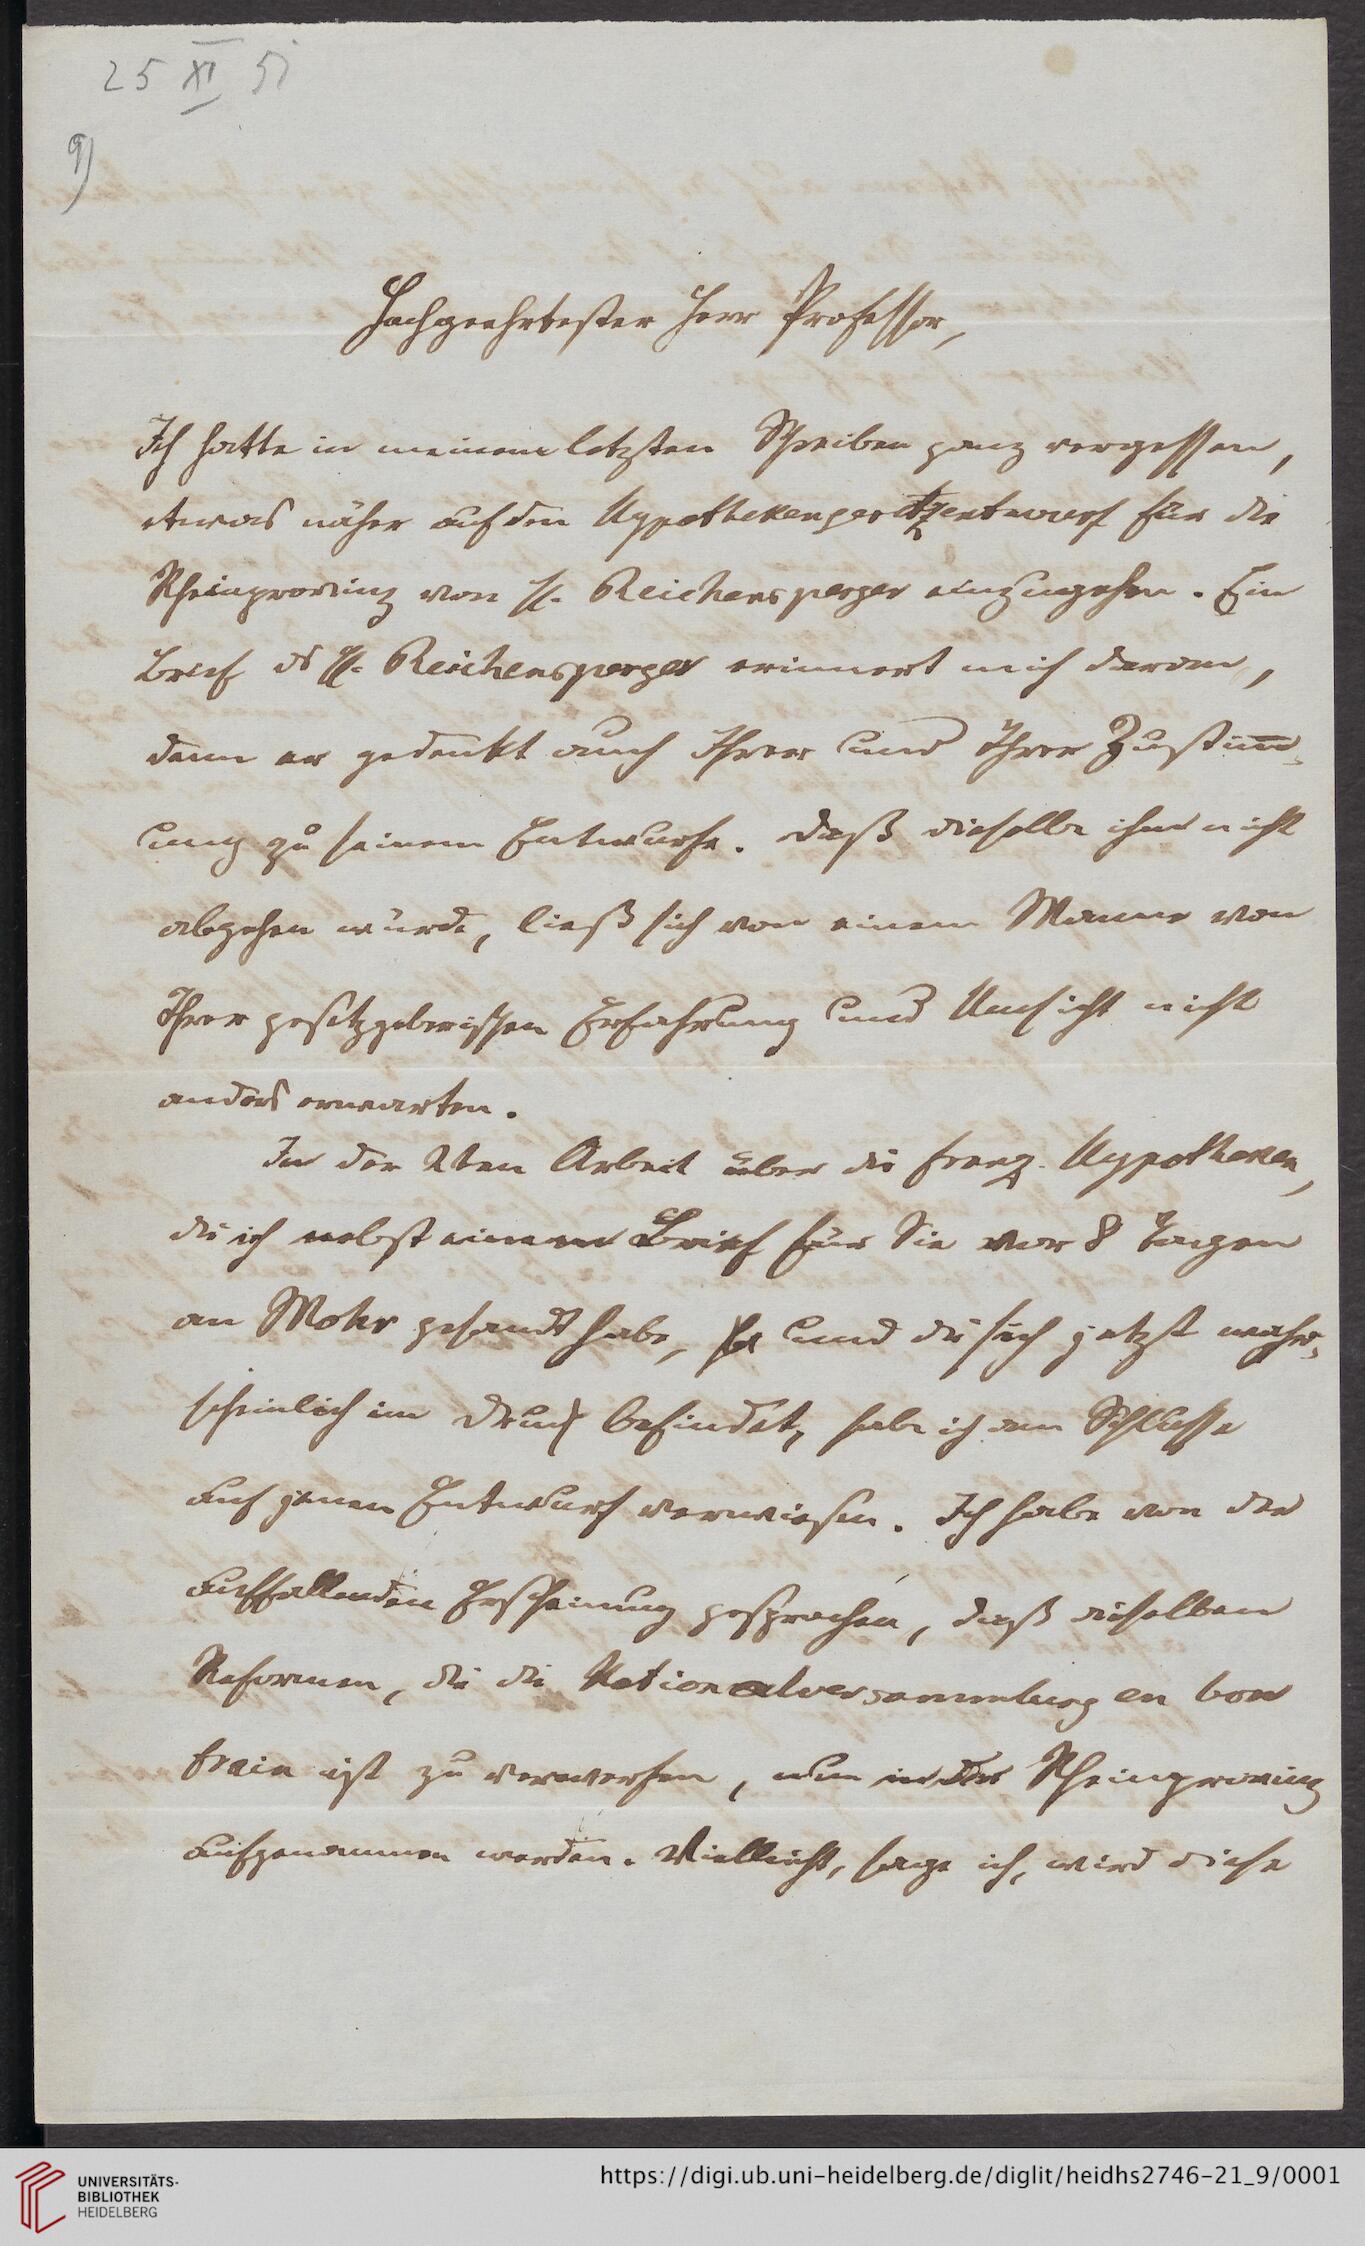 25 XI 51
9)
Hochgeehrtester Herr Professor,
Ich hatte in meinem letzten Schreiben ganz vergessen,
etwas näher auf den Hypothekengesetzentwurf für die
Rheinprovinz von H. Reichensperger einzugehen. Ein
Brief des H. Reichensperger erinnert mich daran,
denn er gedenkt auch Ihrer und Ihrer Zustimm-
ung zu seinem Entwurfe. Daß dieselbe ihm nicht
abgehen würde, ließ sich von einem Manne von
Ihrer gesetzgeberischen Erfahrung und Umsicht nicht
anders erwarten.
In der 2ten Arbeit über die franz. Hypotheken,
die ich nebst einem Brief für Sie vor 8 Tagen
an Mohr gesandt habe, und die sich jetzt wahr-
scheinlich im Druck befindet, habe ich am Schlusse
auf jenen Entwurf verwiesen. Ich habe von der
auffallenden Erscheinung gesprochen, daß dieselben
Reformen, die die Nationalversammlung en bon
train ist zu verwerfen, nun in der Rheinprovinz
aufgenommen werden. Vielleicht, sage ich, wird diese
UNIVERSITÄTS-
BIBLIOTHEK
HEIDELBERG
https://digi.ub.uni-heidelberg.de/diglit/heidhs2746-21_9/0001